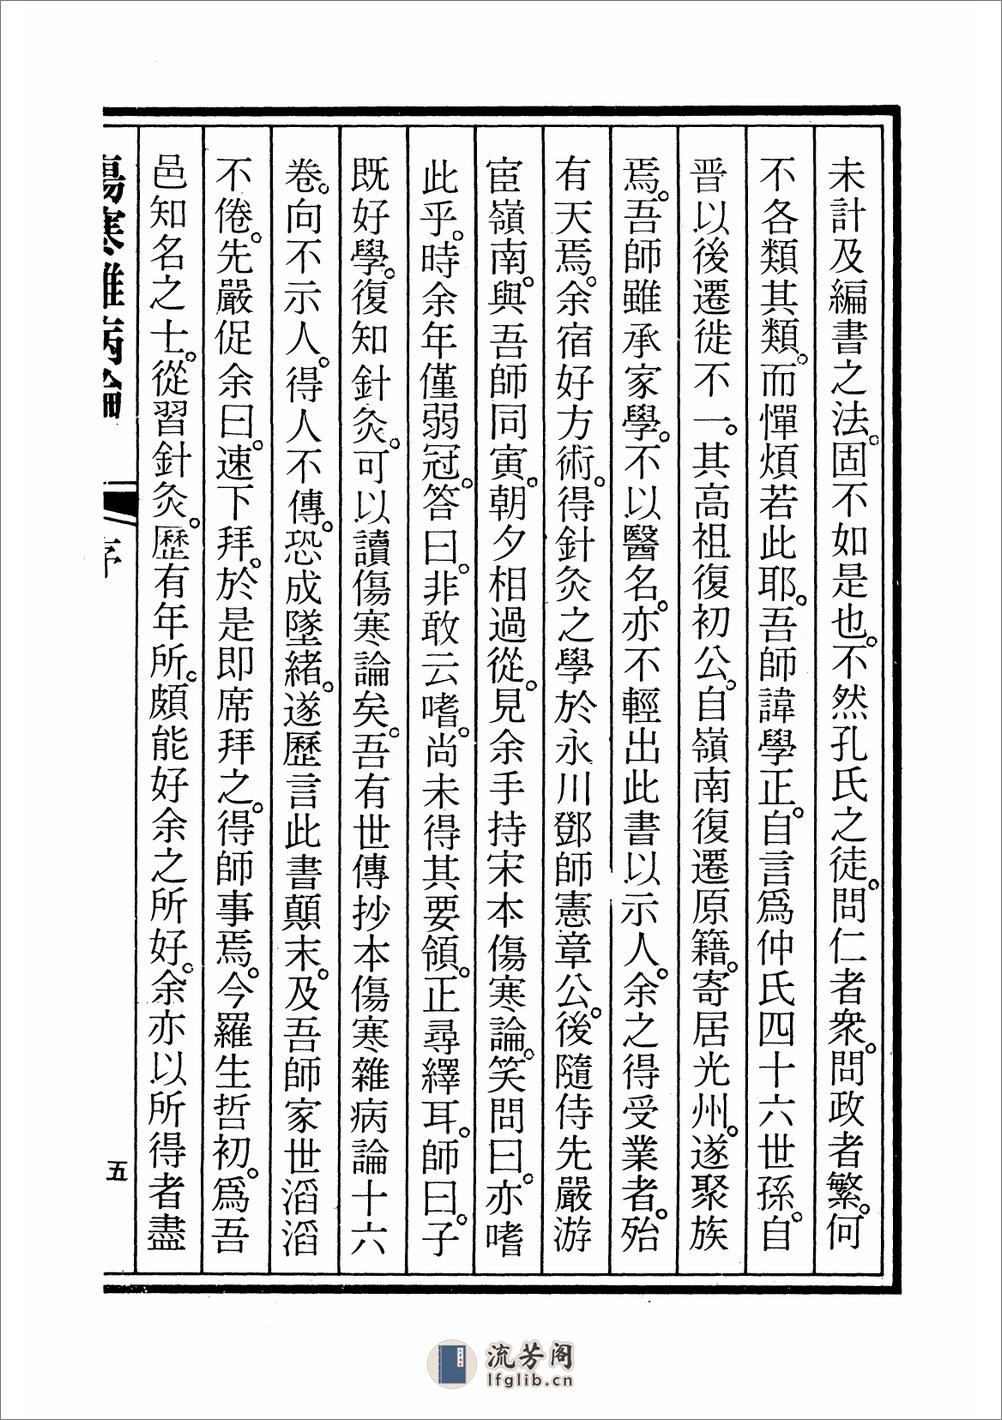 未計及編書之法。固不如是也。不然孔氏之徒。問仁者衆。問政者繁。何
不各類其類。而憚煩若此耶。吾師諱學正。自言爲仲氏四十六世孫。自
晉以後遷徙不一。其高祖復初公。自嶺南復遷原籍。寄居光州。遂聚族
焉。吾師雖承家學。不以醫名。亦不輕出此書以示人。余之得受業者。殆
有天焉。余宿好方術。得針灸之學於永川鄧師憲章公。後隨侍先嚴游
宦嶺南。與吾師同寅。朝夕相過從。見余手持宋本傷寒論。笑問曰。亦嗜
此乎。時余年僅弱冠。答曰。非敢云嗜。尚未得其要領。正尋繹耳。師曰。子
既好學。復知針灸。可以讀傷寒論矣。吾有世傳抄本傷寒雜病論十六
卷。向不示人。得人不傳。恐成墜緒。遂歷言此書顛末。及吾師家世滔滔
不倦。先嚴促余曰。速下拜。於是即席拜之。得師事焉。今羅生哲初。爲吾
邑知名之士。從習針灸。歷有年所。頗能好余之所好。余亦以所得者盡
傷寒雜病論 序 五
流芳阁
lfglib.cn